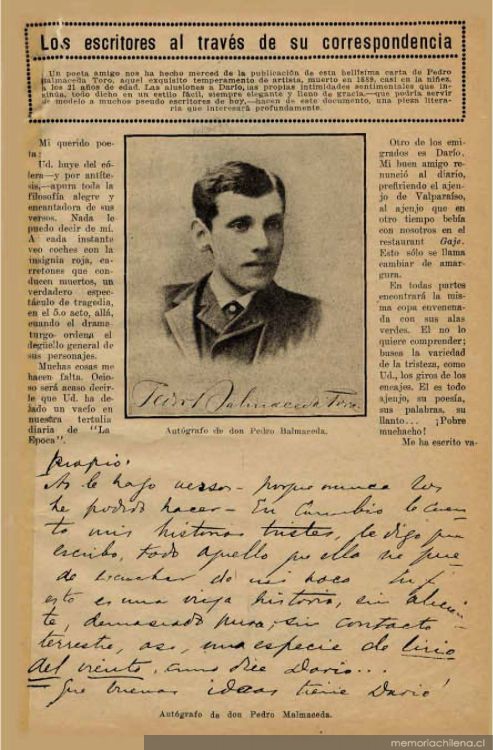 Los escritores al través de su correspondencia
Un poeta amigo nos ha hecho merced de la publicación de esta bellísima carta de Pedro
Balmaceda Toro, aquel exquisito temperamento de artista, muerto en 1889, casi en la niñez,
a los 21 años de edad. Las alusiones a Darío, las propias intimidades sentimentales que in-
sinúa, todo dicho en un estilo fácil, siempre elegante y lleno de gracia—que podría servir
de modelo a muchos pseudo escritores de hoy,—hacen de este documento, una pieza litera-
ria que interesará profundamente.
Mi querido poe-
ta:
Ud. huye del có-
lera—y por antíte-
sis,—apura toda la
filosofía alegre y
encantadora de sus
versos. Nada le
puedo decir de mí.
A cada instante
veo coches con la
insignia roja, ca-
rretones que con-
ducen muertos, un
verdadero espec-
táculo de tragedia,
en el 5.o acto, allá,
cuando el drama-
turgo ordena el
degüello general de
sus personajes.
Muchas cosas me
hacen falta. Ocio-
so será acaso decir-
le que Ud. ha de-
jado un vacío en
nuestra tertulia
diaria de "La
Epoca".
Pedro Balmaceda Toro
Autógrafo de don Pedro Balmaceda.
Otro de los emi-
grados es Darío.
Mi buen amigo re-
nunció al diario,
prefiriendo el ajen-
jo de Valparaíso,
al ajenjo que en
otro tiempo bebía
con nosotros en el
restaurant Gaje.
Esto sólo se llama
cambiar de amar-
gura.
En todas partes
encontrará la mis-
ma copa envenena-
da con sus alas
verdes. El no lo
quiere comprender;
busca la variedad
de la tristeza, como
Ud., los giros de los
encajes. El es todo
ajenjo, su poesía,
sus palabras, su
llanto... ¡Pobre
muchacho!
Me ha escrito va-
propio!
No le hago versos — porque nunca los
he podido hacer — En cambio le cuen-
to mis historias tristes, le digo por
escrito, todo aquello que ella no pue-
de escuchar de mi boca
esto es una vieja historia, sin alicien-
te, demasiado pura, sin contacto
terrestre, así, una especie de lirio
del viento, como dice Darío...
Que buenas ideas tiene Darío!
Autógrafo de don Pedro Malmaceda.
memoriachilena.cl